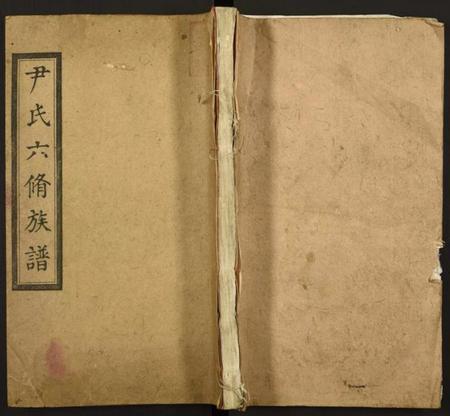 尹氏六脩族譜